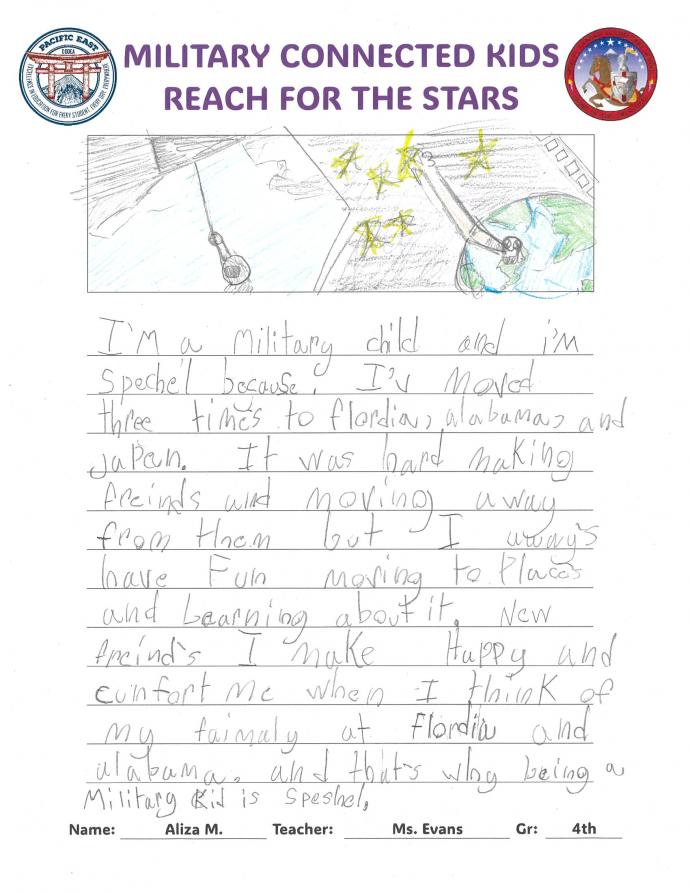 PACIFIC EAST
DODEA
EXCELLENCE IN EDUCATION FOR EVERY STUDENT, EVERY DAY, EVERYWHERE
MILITARY CONNECTED KIDS
REACH FOR THE STARS
I'M a Military child and i'M
Speche'l because, I'v Moved
three times to flordia, alabama, and
Japan. It was hard making
freinds and moving away
from them but I away's
have Fun moving to Places
and Learning about it. New
freind's I make Happy and
cumfort me when I think of
my faimaly at Flordia and
alabama. and that's why being a
Military Kid is Speshel.
Name: Aliza M. Teacher: Ms. Evans Gr: 4th